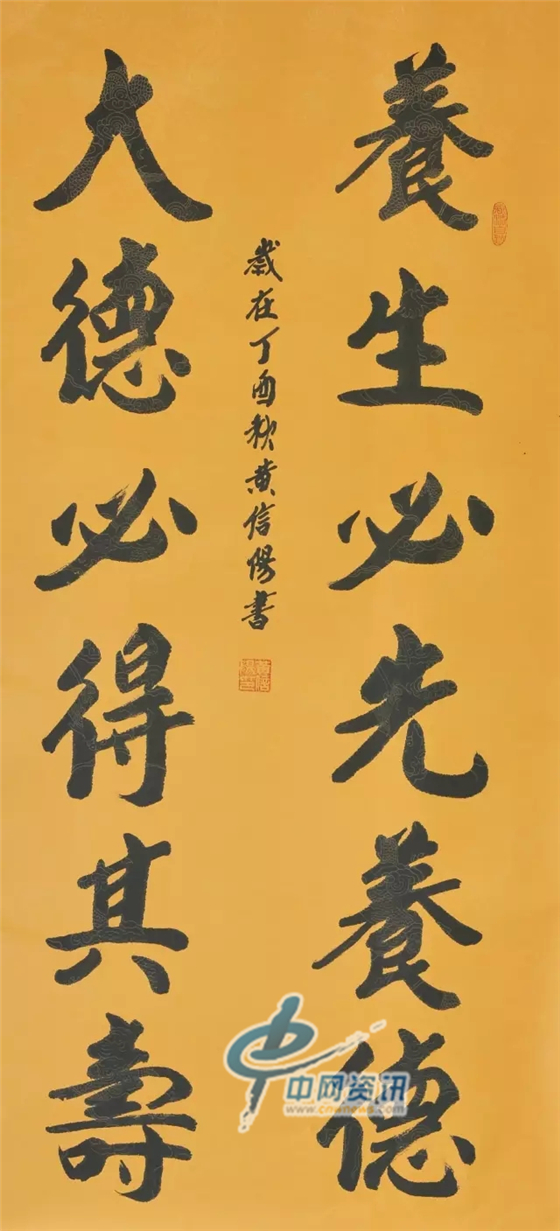 養生必先養德
大德必得其壽
歲在丁酉秋黄信陽書
中网资讯
www.cnwnews.com